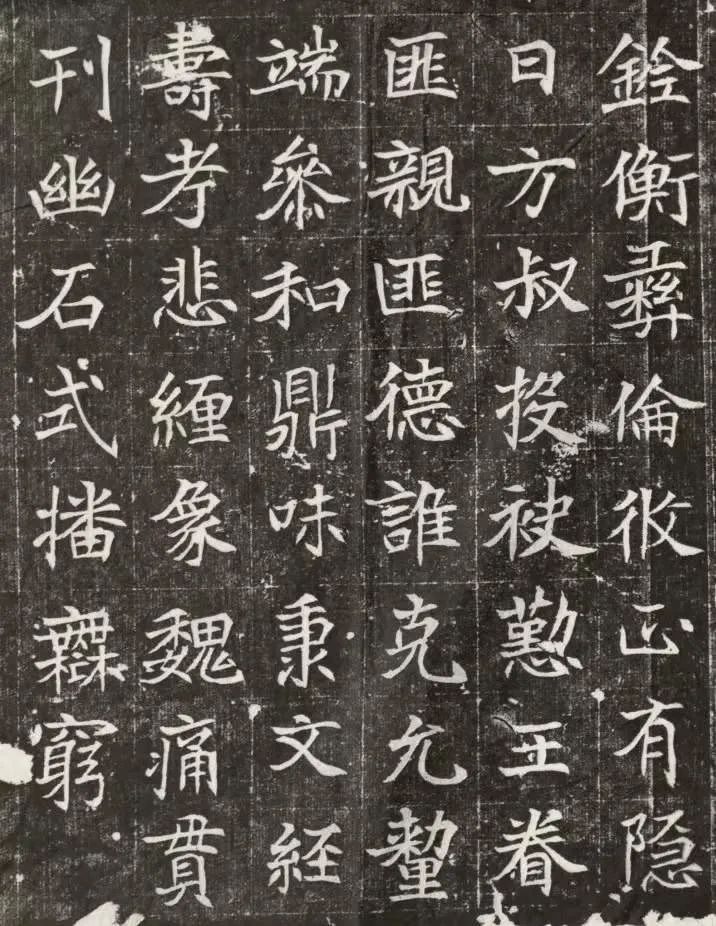 銓衡彝倫攸正有隐
日方叔投袂懃王眷
匪親匪德誰克允釐
端叅和鼎味秉文経
壽考悲緾象魏痛貫
刊幽石式播橆窮